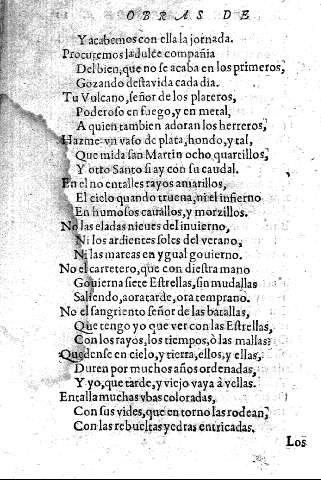 OBRAS DE
Y acabemos con ella la jornada.
Procuremos la dulce compañia
Del bien, que no se acaba en los primeros,
Gozando desta vida cada dia.
Tu Vulcano, señor de los plateros,
Poderoso en fuego, y en metal,
A quien tambien adoran los herreros,
Hazme vn vaso de plata, hondo, y tal,
Que mida san Martin ocho quartillos,
Y otto Santo si ay con su caudal.
En el no entalles rayos amarillos,
El cielo quando truena, ni el infierno
En humosos cauallos, y morzillos.
No las eladas nieues del inuierno,
Ni los ardientes soles del verano,
Ni las mareas en ygual gouierno.
No el carretero, que con diestra mano
Gouierna siete Estrellas, sin mudallas
Saliendo, aora tarde, ora temprano.
No el sangriento señor de las batallas,
Que tengo yo que ver con las Estrellas,
Con los rayos, los tiempos, ò las mallas?
Quedense en cielo, y tierra, ellos, y ellas,
Duren por muchos años ordenadas,
Y yo, que tarde, y viejo vaya à vellas.
Entalla muchas vbas coloradas,
Con sus vides, que en torno las rodean,
Con las rebueltas yedras entricadas.
Los